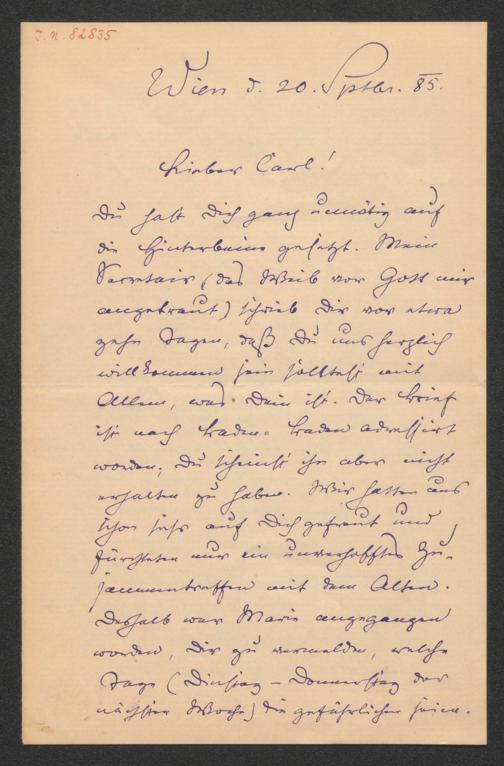 I. N. 82835
Wien d. 20. Sptbr. 85.
Lieber Carl!
Du hast Dich ganz unnötig auf
die Hinterbeine gesetzt. Mein
Secretair (das Weib vor Gott mir
angetraut) schrieb Dir vor etwa
zehn Tagen, daß Du uns herzlich
willkommen sein solltest mit
Allem, was Dein ist. Der Brief
ist nach Baden-Baden adressirt
worden; Du scheinst ihn aber nicht
erhalten zu haben. Wir hatten uns
schon sehr auf Dich gefreut und
fürchteten nur ein unverhofftes Zu-
sammentreffen mit dem Alten.
Deshalb war Marie angegangen
worden, Dir zu vermelden, welche
Tage (Dinstag – Donnerstag der
nächsten Woche) die gefährlichen seien.